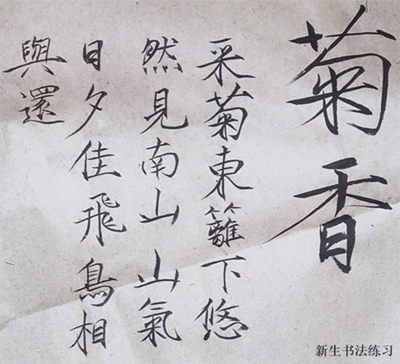 菊香
采菊東籬下悠
然見南山山氣
日夕佳飛鳥相
與還
新生书法练习